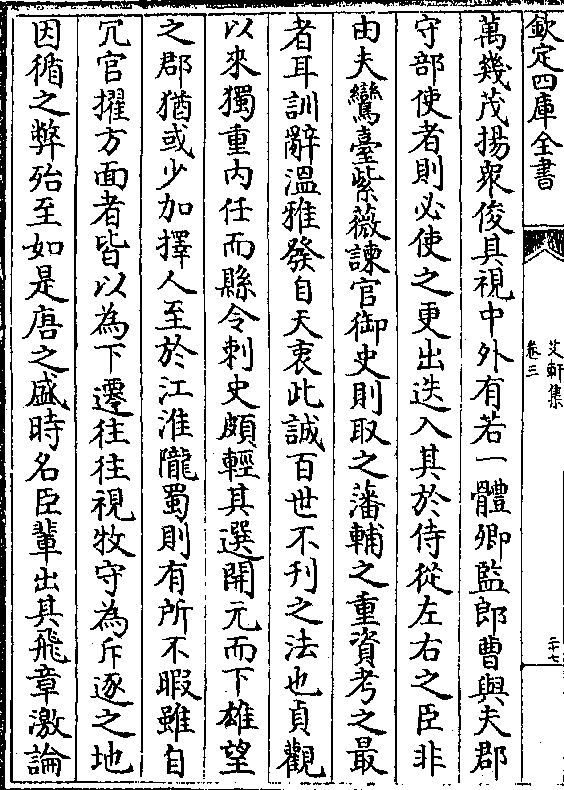 欽定四庫全書
艾軒集
卷三
二十七
萬幾茂揚衆俊具視中外有若一體卿監郎曹與夫郡
守部使者則必使之更出迭入其於侍從左右之臣非
由夫鸞臺紫薇諫官御史則取之藩輔之重資考之最
者耳訓辭溫雅發自天衷此誠百世不刊之法也貞觀
以來獨重内任而縣令刺史頗輕其選開元而下雄望
之郡猶或少加擇人至於江淮隴蜀則有所不暇雖自
冗官擢方面者皆以為下遷往往視牧守為斥逐之地
因循之弊殆至如是唐之盛時名臣輩出其飛章激論